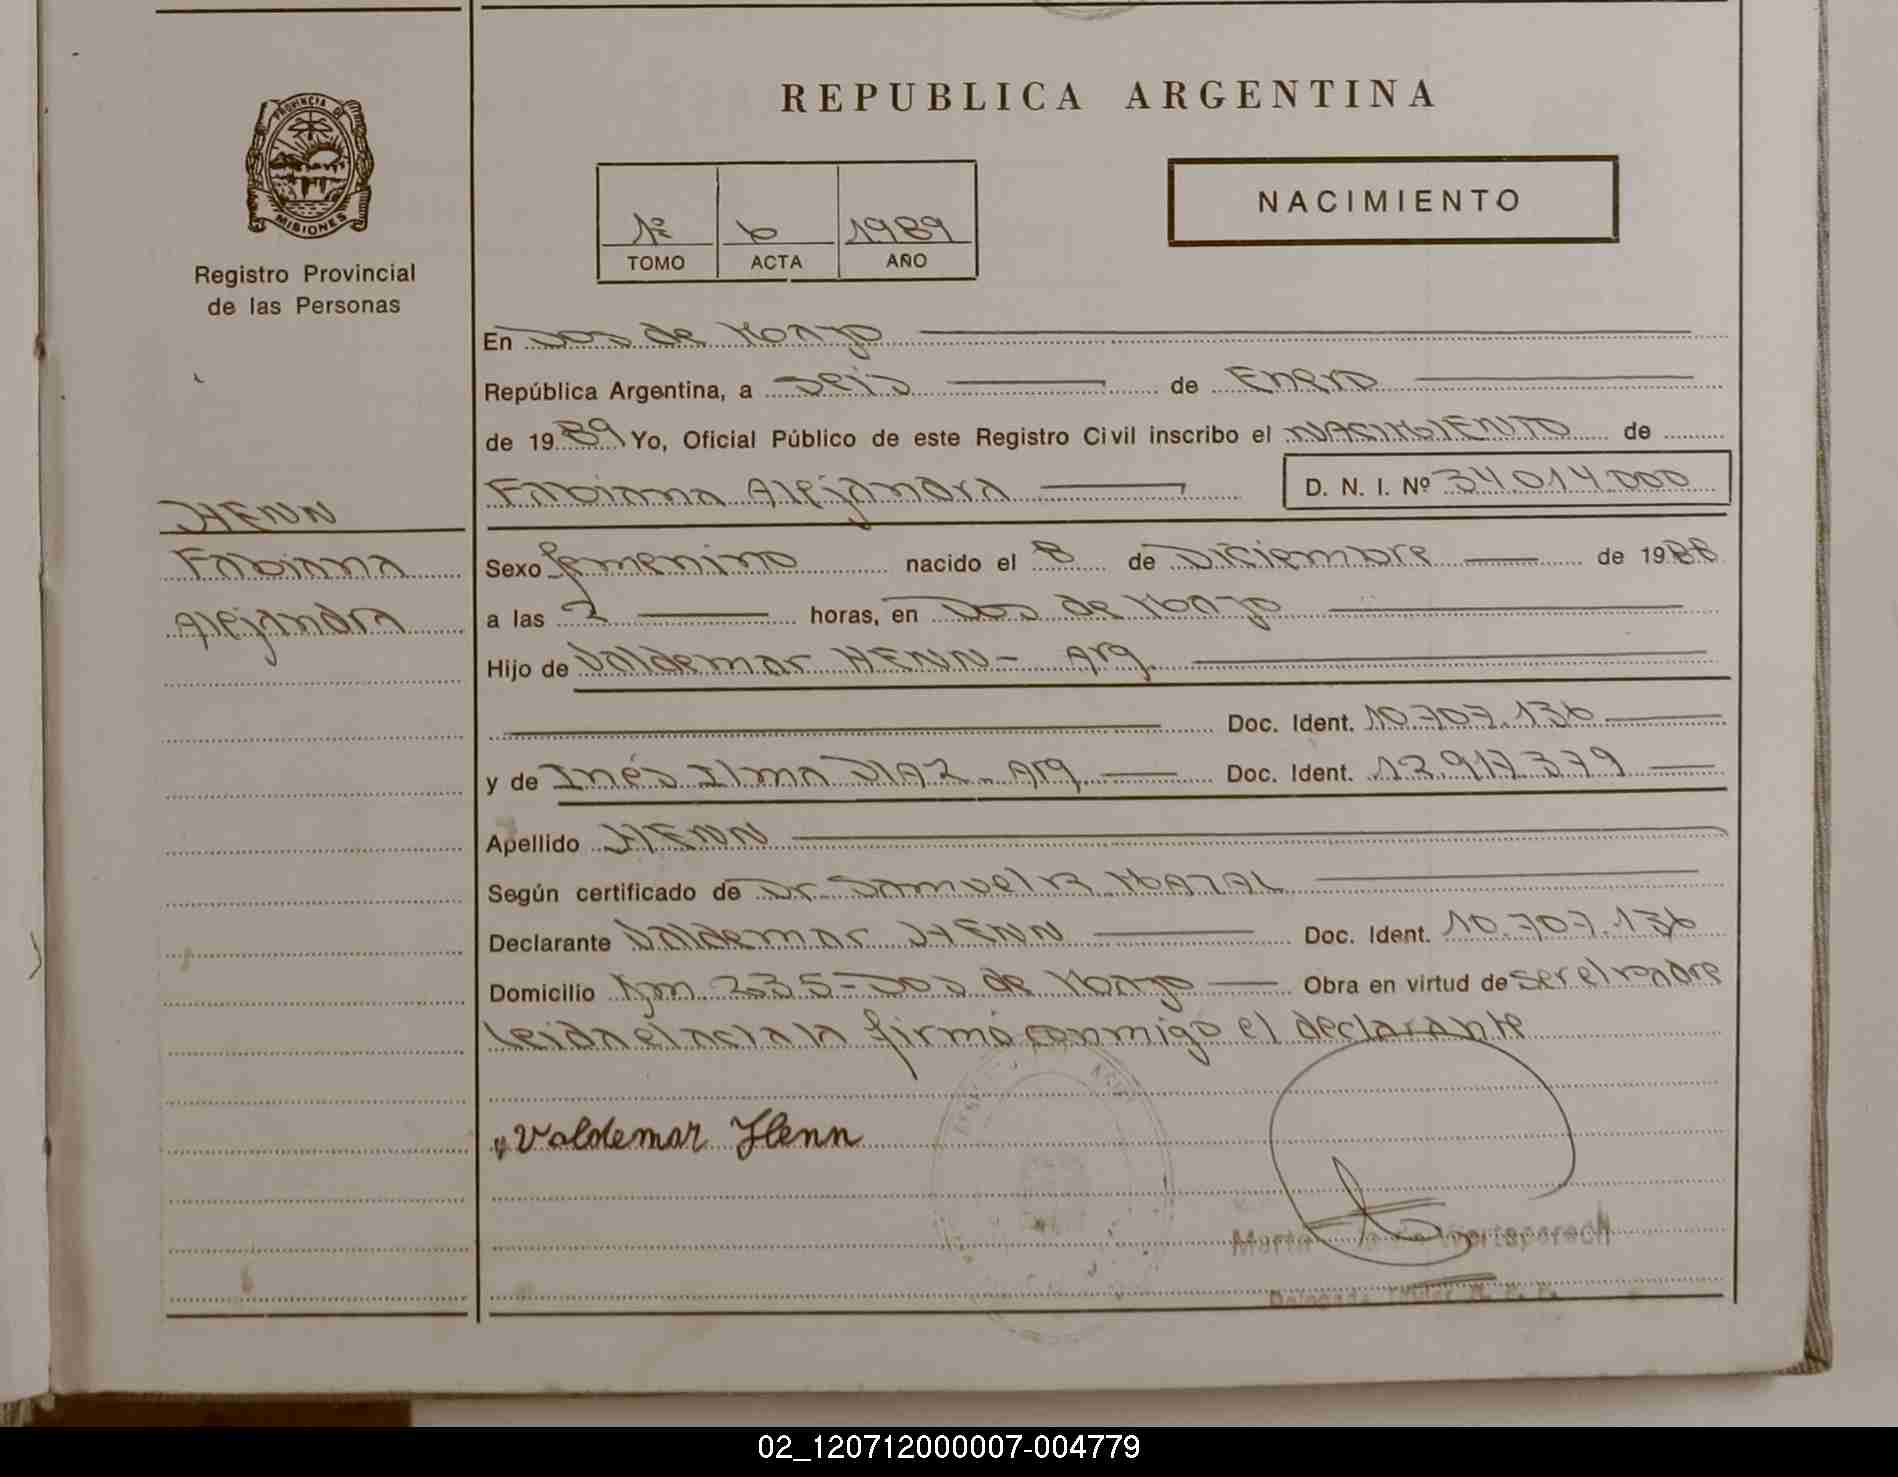 REPUBLICA ARGENTINA
PROVINCIA D
MISIONES
Registro Provincial
de las Personas
NACIMIENTO
1º 6 1989
TOMO ACTA AÑO
En Dos de Mayo
República Argentina, a Seis de Enero
de 1989 Yo, Oficial Público de este Registro Civil inscribo el NACIMIENTO de
Fabiana Alejandra D. N. I. Nº 34.014.000
HENN
Fabiana
Alejandra
Sexo femenino nacido el 8 de Diciembre de 1988
a las 2 horas, en Dos de Mayo
Hijo de Valdemar HENN - Arg.
Doc. Ident. 10.707.136
y de Inés Ilma DIAZ - Arg. Doc. Ident. 12.917.379
Apellido HENN
Según certificado de Dr. Samuel
Declarante Valdemar HENN Doc. Ident. 10.707.136
Domicilio Km 235 - Dos de Mayo Obra en virtud de ser el padre
Leida el acta la firmó conmigo el declarante
Valdemar Henn
02_120712000007-004779